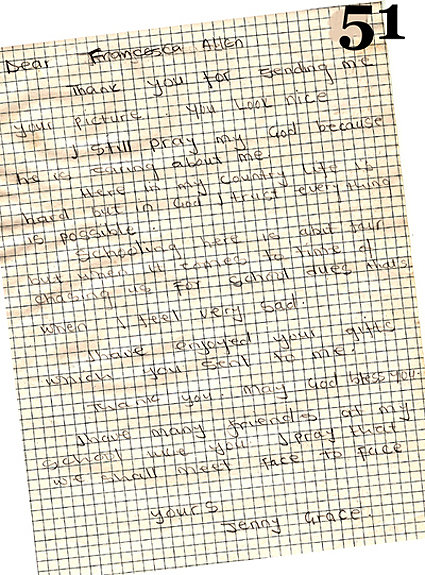 51
Dear Francesca Allen
Thank you for sending me
your picture. You look nice
I still pray my God because
he is caring about me.
Here in my country life is
hard but in God I trust everything
is possible.
Schooling here is abit fair
but when it comes to time of
chasing us for school dues thats
when I feel very sad.
I have enjoyed your gifts
which you sent to me.
Thank you. May God bless you.
I have many friends at my
school like you I pray that
we shall meet face to face
yours
Jenny Grace.